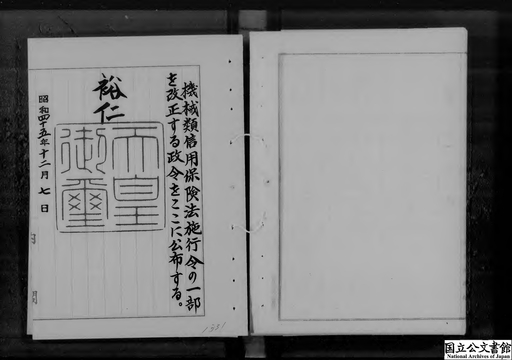 機械類信用保険法施行令の一部
を改正する政令をここに公布する。
裕仁
天皇
御璽
昭和四十五年十二月七日
1331
国立公文書館
National Archives of Japan